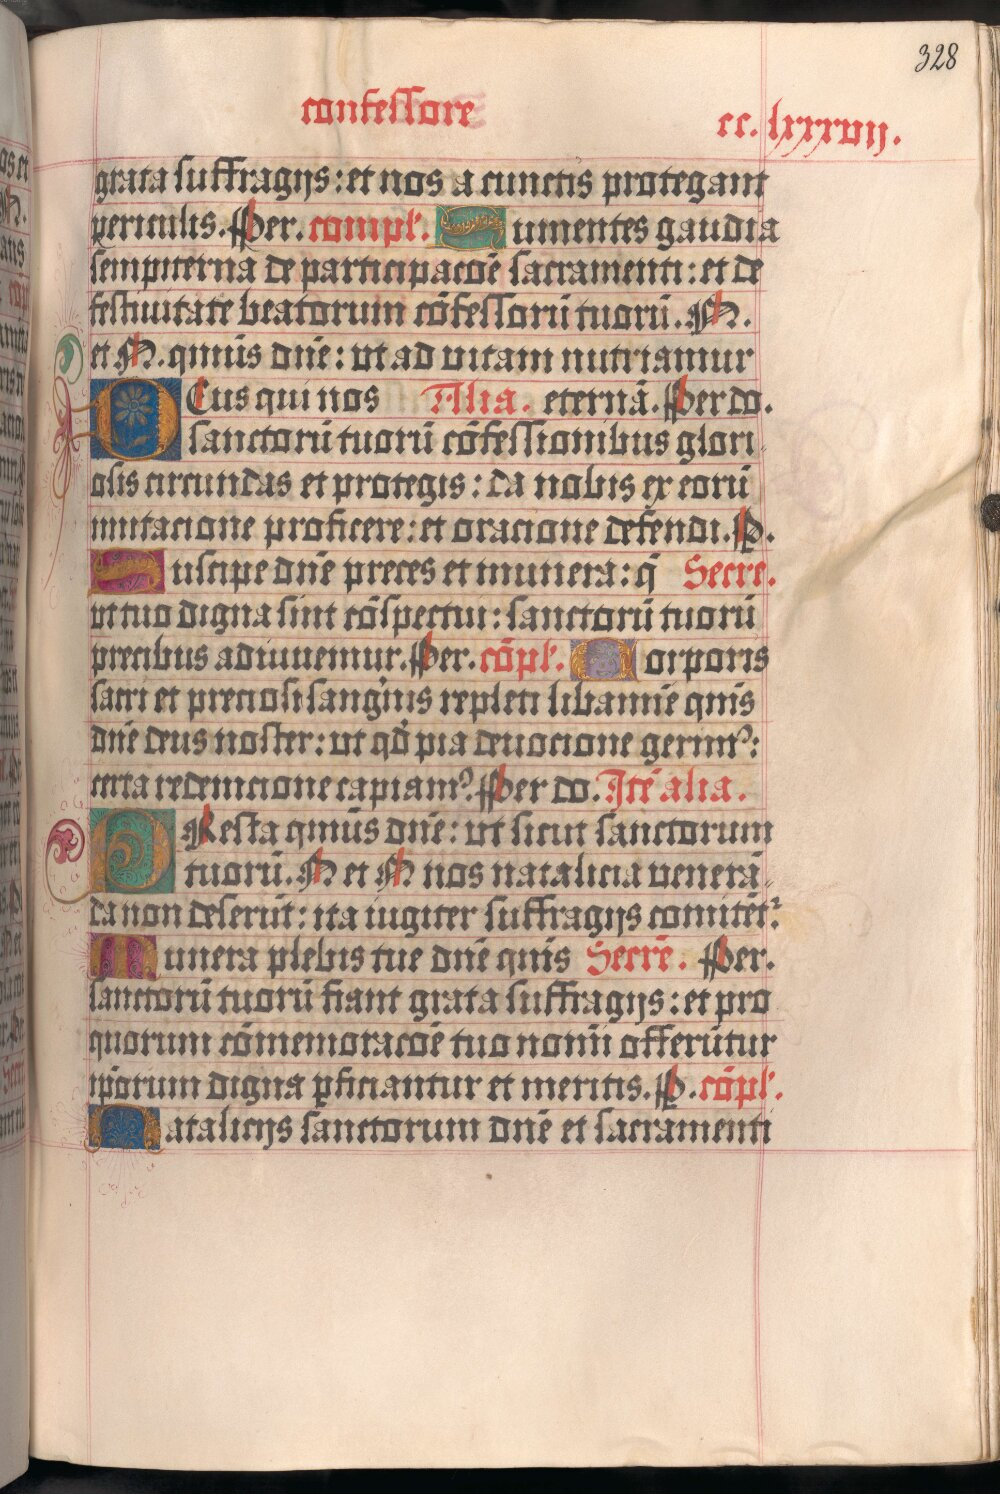 328
confessore
cc. lxxxvij.
grata suffragijs: et nos a cunctis protegant
periculis. Per. compl'. Sumentes gaudia
sempiterna de participacōe sacramenti: et de
festiuitate beatorum cōfessorū tuorū. N.
et N. qm̄us dn̄e: vt ad vitam nutriamur
DEus qui nos Alia. eternā. Per do.
sanctorū tuorū cōfessionibus glori
osis circundas et protegis: da nobis ex eorū
imitacione proficere: et oracione defendi. P.
Suscipe dn̄e preces et munera: q̄ Secre.
vt tuo digna sint cōspectui: sanctorū tuorū
precibus adiuuemur. Per. cōpl'. Corporis
sacri et preciosi sang'nis repleti libamīe qm̄s
dn̄e deus noster: vt qd' pia deuocione gerim9:
certa redemcione capiam9. Per do. Itē alia.
PResta qm̄us dn̄e: vt sicut sanctorum
tuorū. N et N nos natalicia venerā
da non deserūt: ita iugiter suffragijs comitēt2
Munera plebis tue dn̄e qm̄s Secrē. Per.
sanctorū tuorū fiant grata suffragijs: et pro
quorum cōmemoracōe tuo nomī offerūtur
ip̄orum digna ꝑficiantur et meritis. P. cōpl'.
Natalicijs sanctorum dn̄e et sacramenti